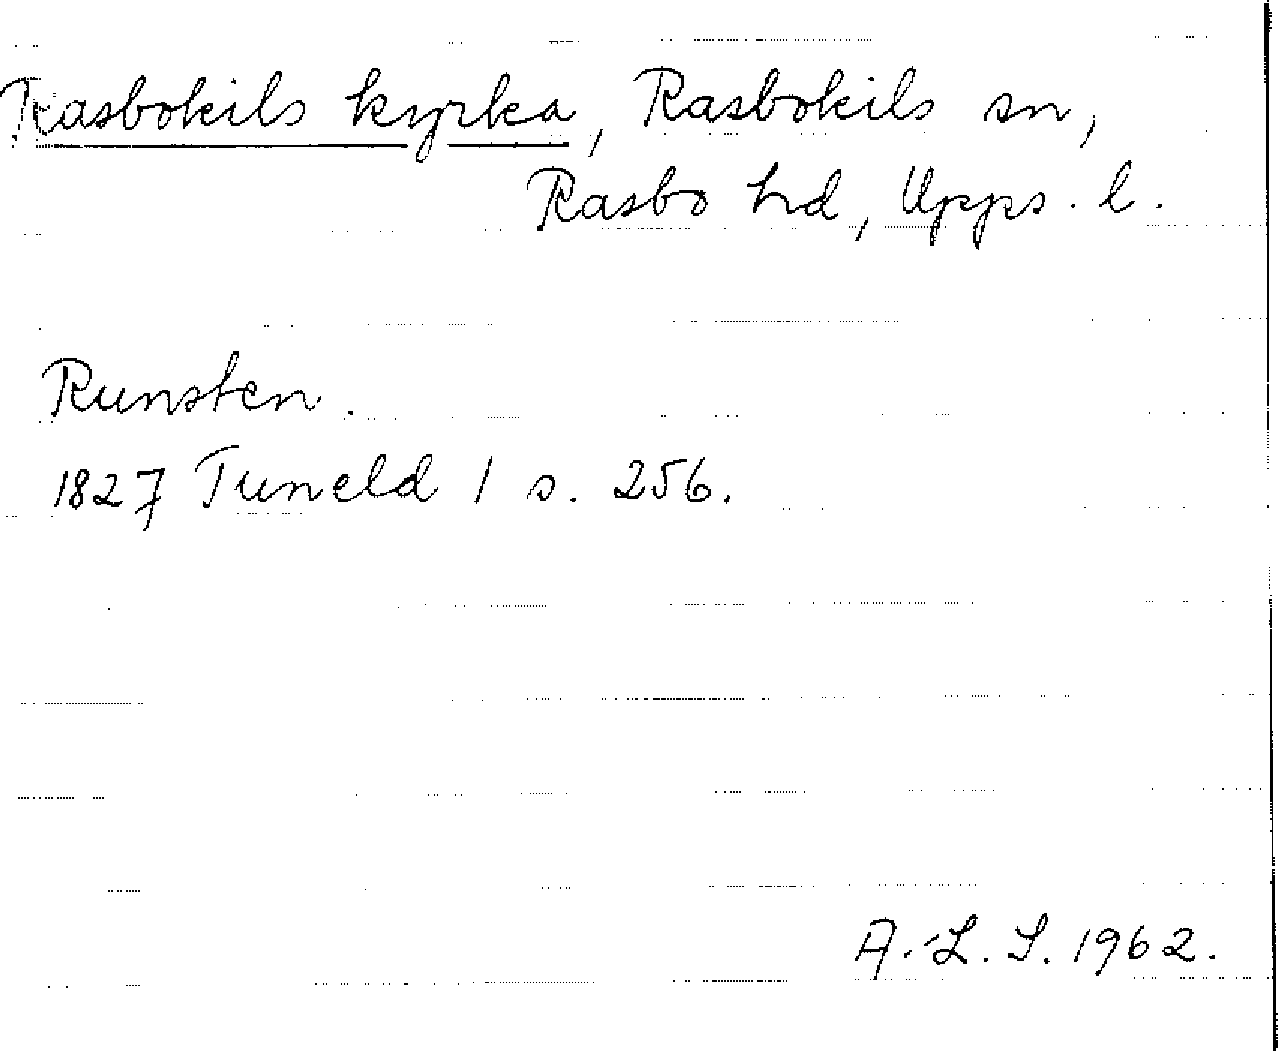 Rasbokils kyrka, Rasbokils sn,
Rasbo hd, Upps. l.
Runsten.
1827 Tuneld 1 s. 256.
A.-L. S. 1962.